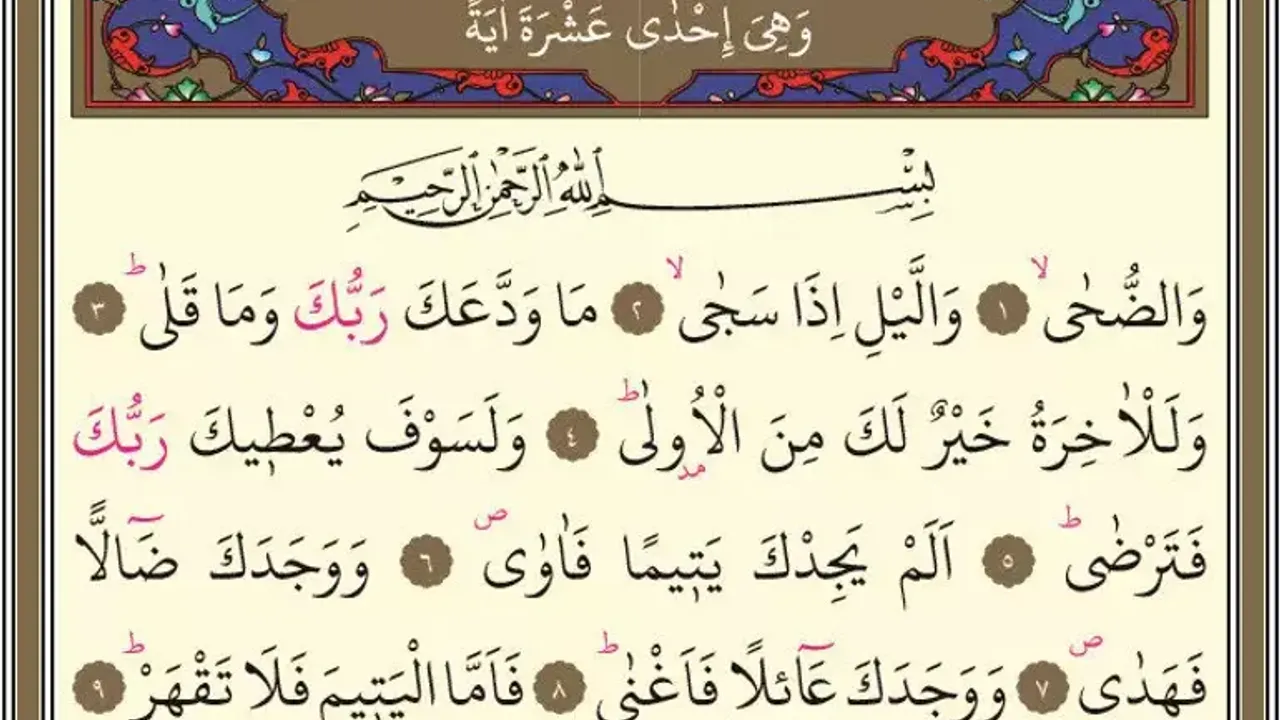 وَهِيَ إِحْدٰى عَشْرَةَ اٰيَةً
بِسْمِ اللّٰهِ الرَّحْمٰنِ الرَّحِيمِ
وَالضُّحٰىۙ ١ وَالَّيْلِ اِذَا سَجٰىۙ ٢ مَا وَدَّعَكَ رَبُّكَ وَمَا قَلٰىؕ ٣
وَلَلْاٰخِرَةُ خَيْرٌ لَكَ مِنَ الْاُو۫لٰىؕ ٤ وَلَسَوْفَ يُعْطٖيكَ رَبُّكَ
فَتَرْضٰىؕ ٥ اَلَمْ يَجِدْكَ يَتٖيمًا فَاٰوٰىࣕ ٦ وَوَجَدَكَ ضَٓالًّا
فَهَدٰىࣕ ٧ وَوَجَدَكَ عَٓائِلًا فَاَغْنٰىؕ ٨ فَاَمَّا الْيَتٖيمَ فَلَا تَقْهَرْؕ ٩